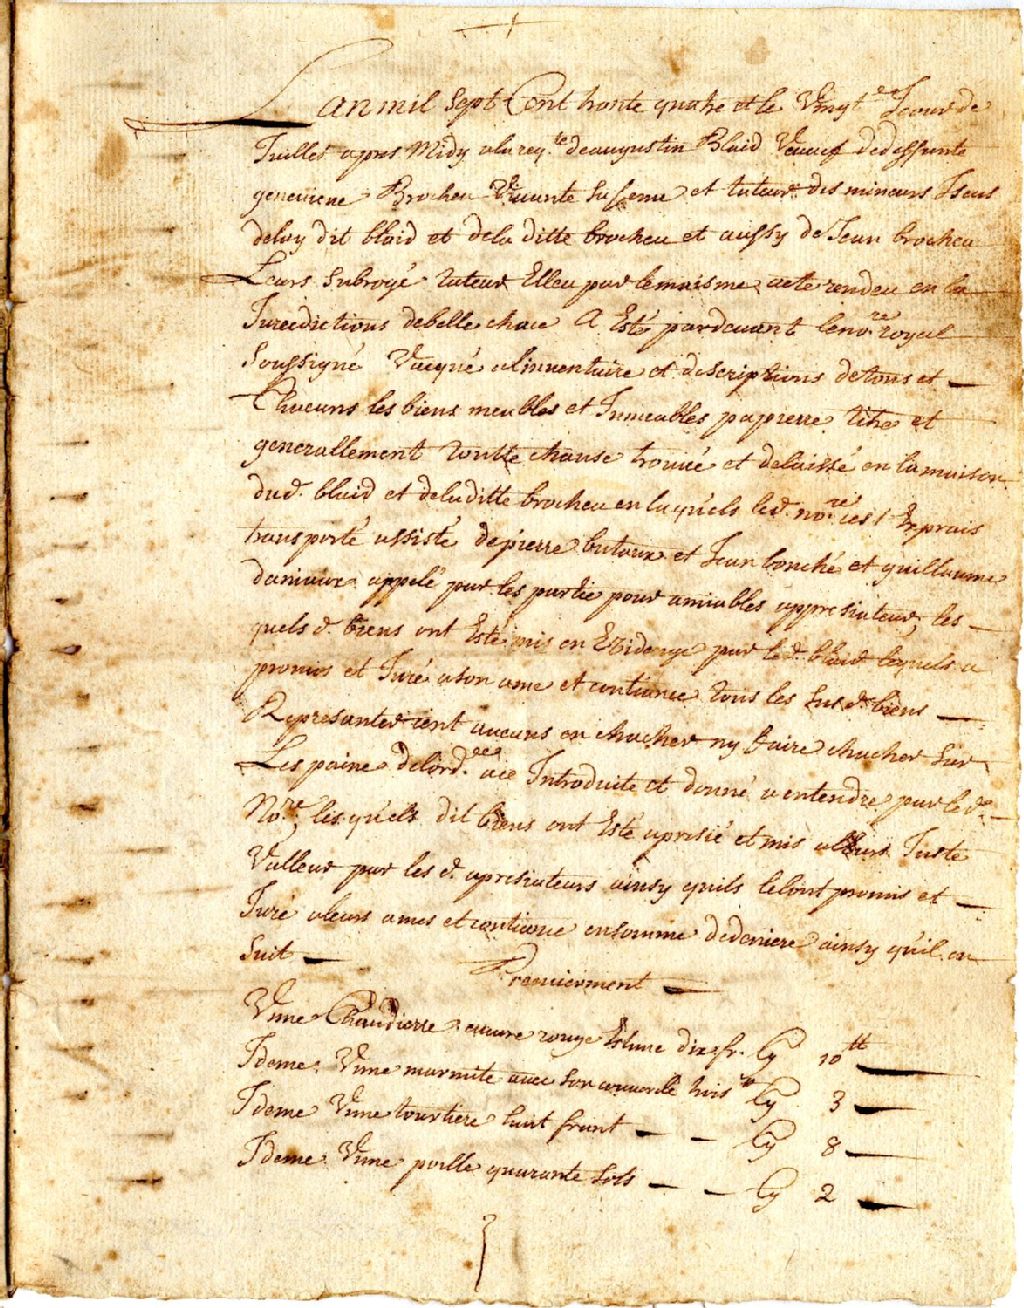 Lan mil Sept Cent trante quatre et le Vingt en Jour de
Juilles apres Midy a la reqte de augustin Blaid Veuuef de deffunte
geneuiene Brocheu Viuante sa feme et tuteur des mineurs Issus
de luy dit blaid et de la ditte brocheu et aussy de Jean brocheu
Leurs Subrogé tuteur Elleu par le maisme acte rendeu en la
Jureedictions de belle chace A Esté pardeuant le nore royal
Soussigné Vacqué a linuentaire et descriptions de tous et
Chacuns les biens meubles et Inmeables papierre titre et
generallement toutte chause trouué et delaissé en la maison
dud. blaid et de la ditte brocheu en la quels led. nore sest Exprais
transporté assisté de pierre butaux et Jean bonché et guillaume
appelé par les partie pour amiables appresiateur, les
quels d. biens ont Esté mis en Euidenge par le d. blaid lequels a
promis et Juré a son ame et contiance tous les sus d. biens
Represanter cent aucuns en chacher ny faire chacher Sur
Les paine de lord.ace Introduite et donné a entendre par le d.
Nore, les quels dit biens ont Esté apresié et mis a leurs Juste
Valleur par les d. apresiateurs ainsy quils le lont promis et
Juré a leurs ames et contiance en somme de deniere ainsy quil en
Suit
Premierment
Vune Chaudierre cuiure rouge Estime dix fr. Cy 10 tt
Ideme Vune marmite auec son couuercle trois tt Cy 3
Ideme Vune tourtiere huit frant Cy 8
Ideme Vune poille quarante sols Cy 2